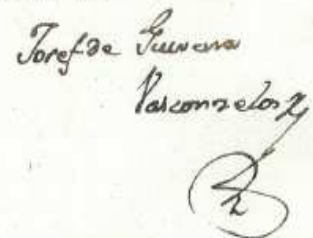 Josef de Guevara
Vasconzelos